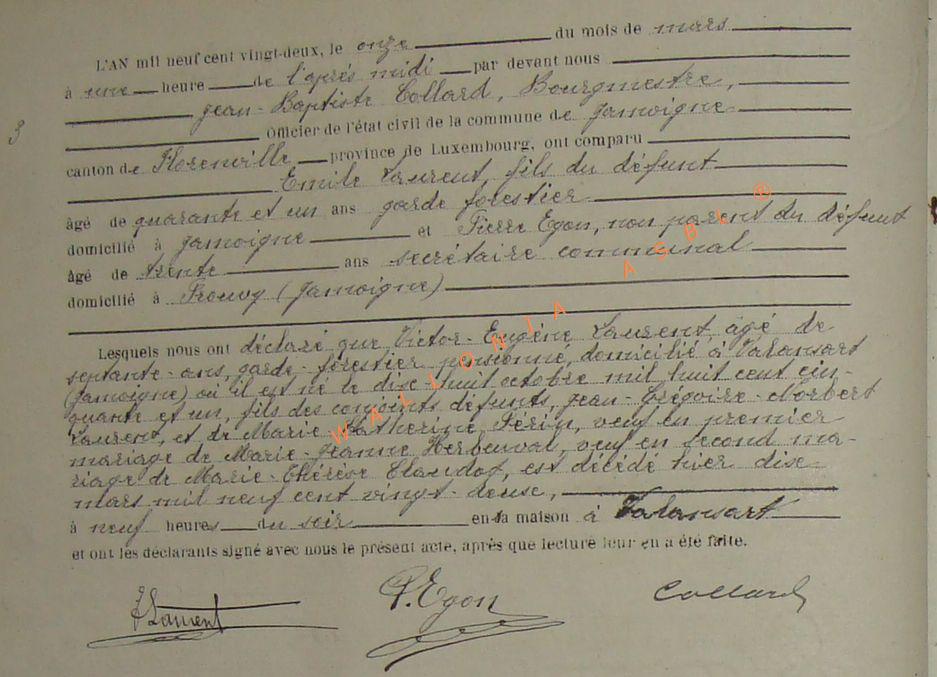 L'AN mil neuf cent vingt-deux, le onze du mois de mars
à une heure de l'après midi par devant nous
Jean-Baptiste Collard, Bourgmestre,
3
Officier de l'état civil de la commune de Jamoigne
canton de Florenville province de Luxembourg, ont comparu
Emile Laurent, fils du défunt
âgé de quarante et un ans garde forestier
domicilié à Jamoigne et Pierre Egon, non parent du défunt
âgé de trente ans secrétaire communal
domicilié à Prouvy (Jamoigne)
Lesquels nous ont déclaré que Victor-Eugène Laurent, âgé de
septante-ans, garde-forestier pensionné, domicilié à Valansart
(Jamoigne) où il est né le dix huit octobre mil huit cent cin-
quante et un, fils des conjoints défunts, Jean-Grégoire-Norbert
Laurent, et de Marie Catherine Férin, veuf en premier
mariage de Marie-Jeanne Herbeuval, veuf en second ma-
riage de Marie-Thérèse Claudot, est décédé hier dix
mars mil neuf cent vingt-deux,
à neuf heures du soir en sa maison à Valansart
et ont les déclarants signé avec nous le présent acte, après que lecture leur en a été faite.
E Laurent P. Egon Collard
WALLONIA ASBL ®